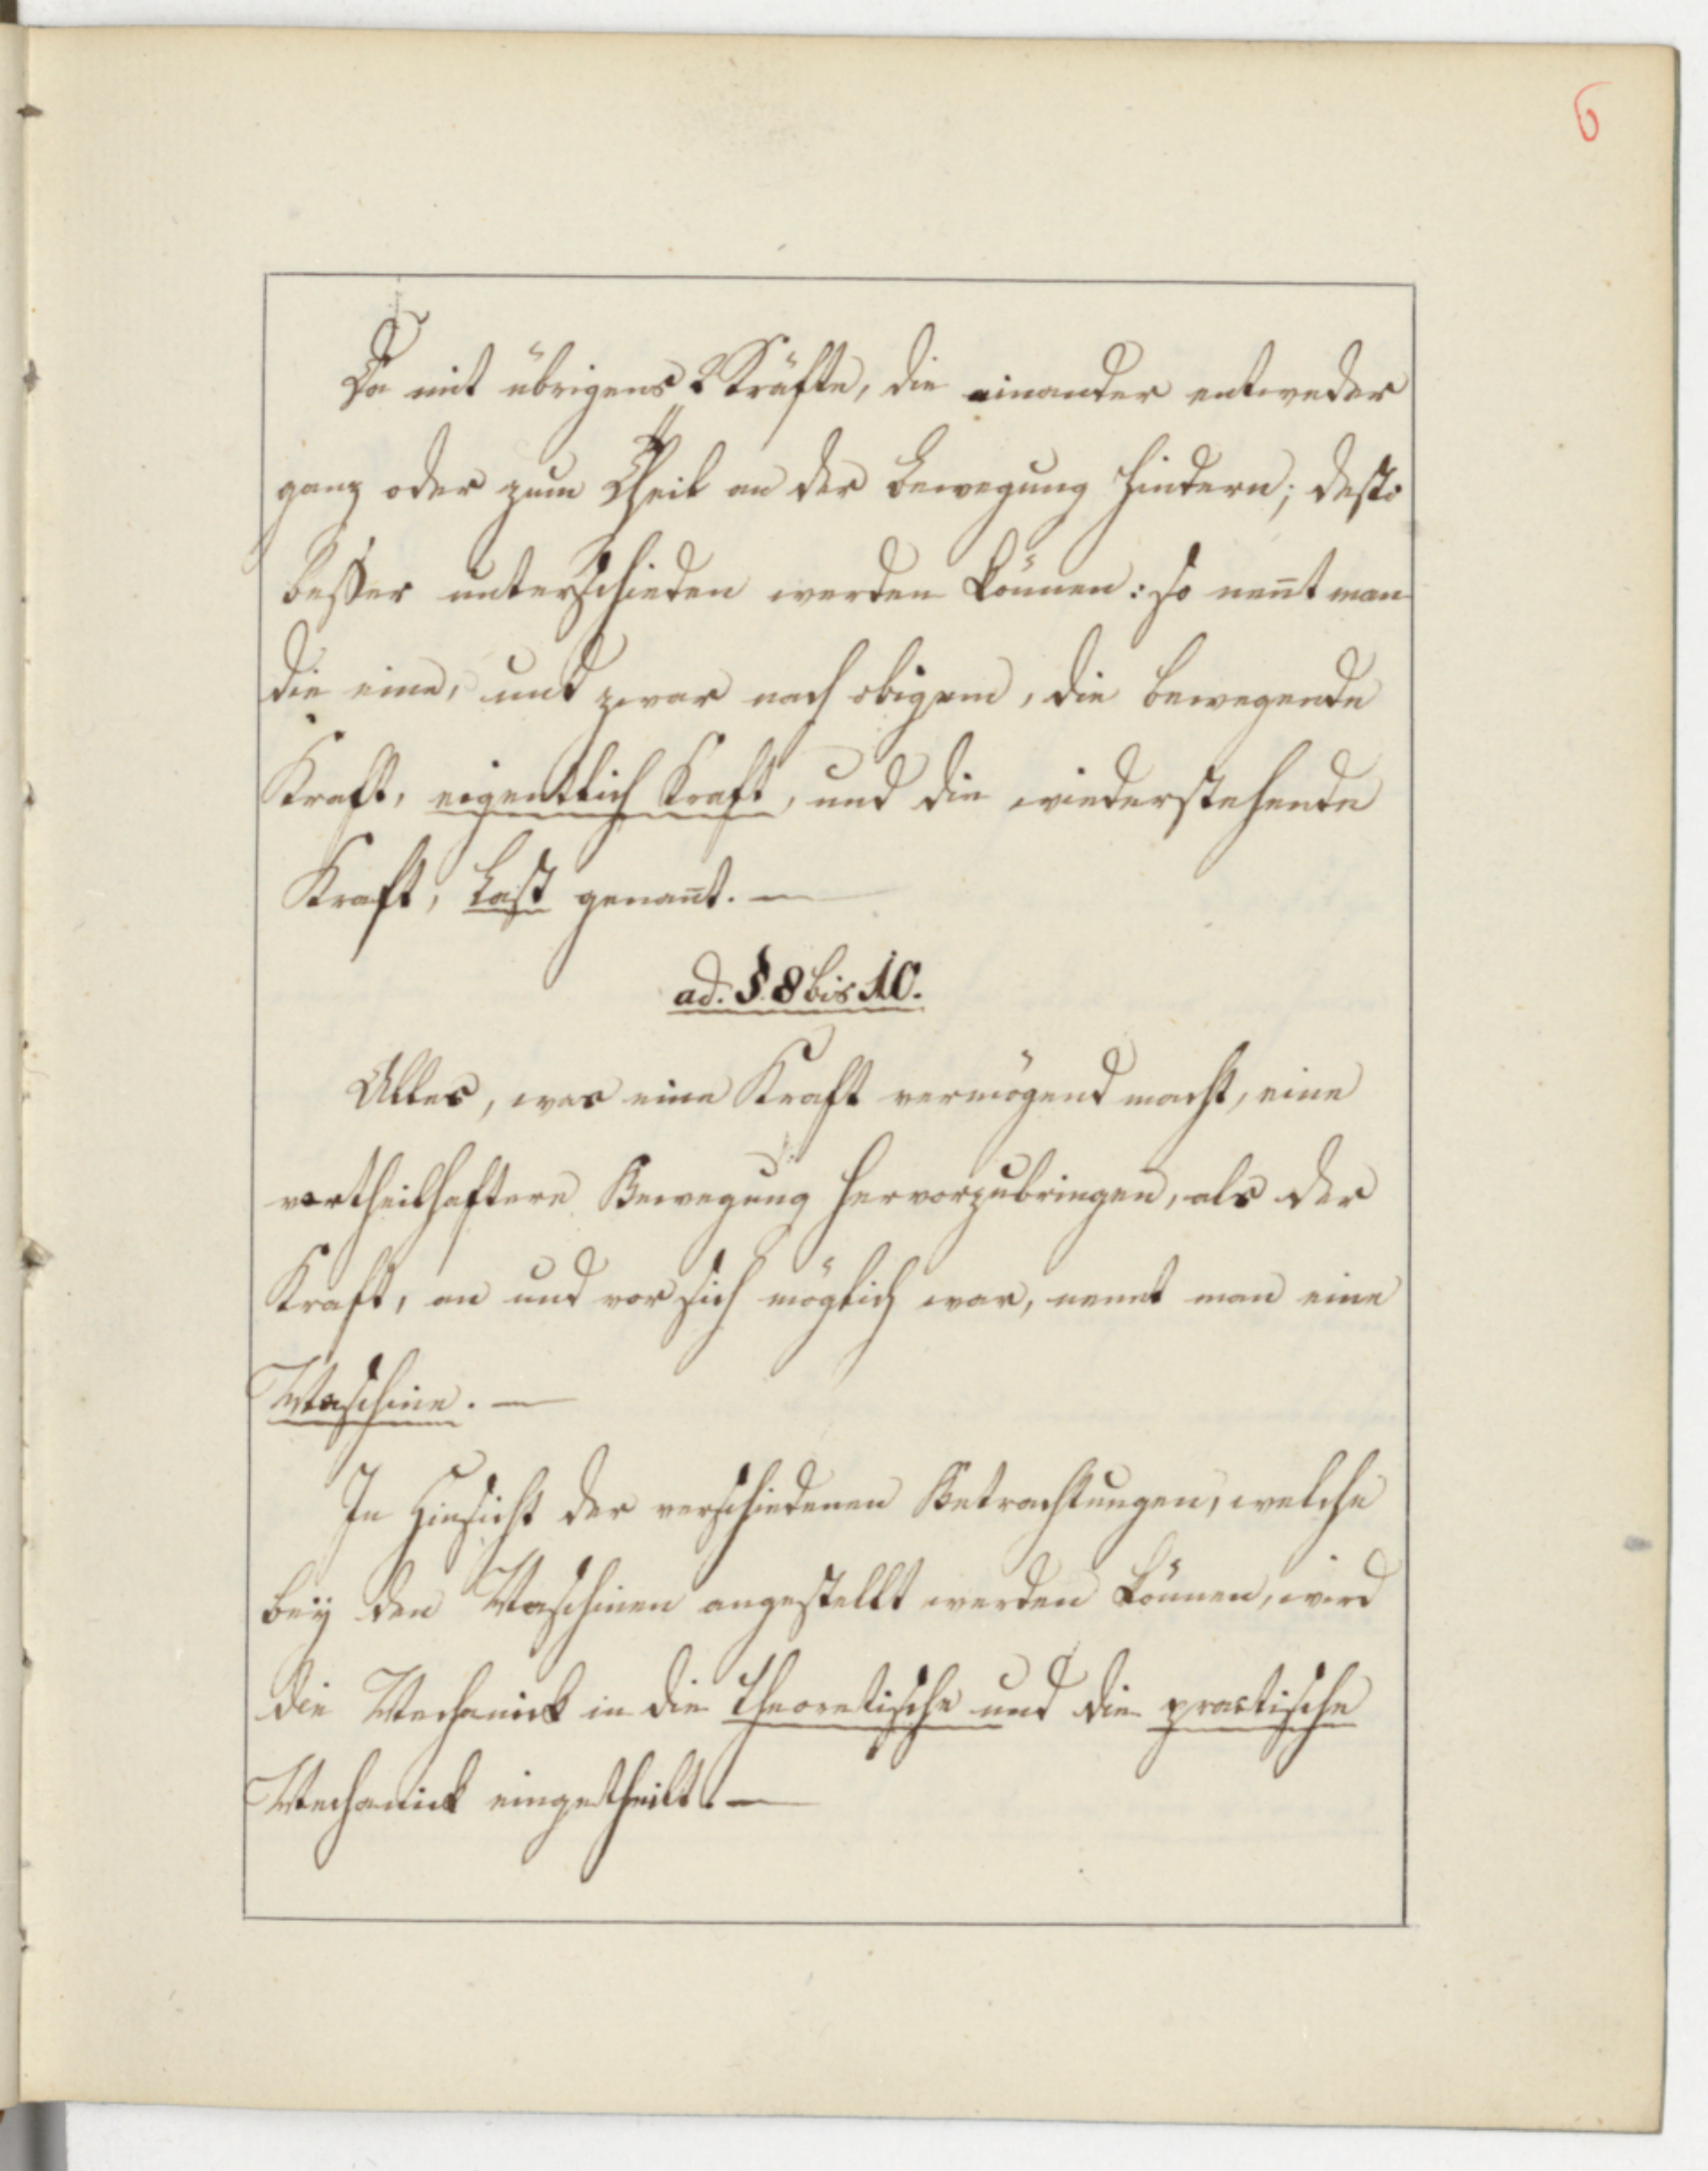 6
Da mit übrigens 2 Kräfte, die einander entweder
ganz oder zum Theil an der Bewegung hindern; desto
besser unterschieden werden können: so nen̄t man
die eine, und zwar nach obigem, die bewegende
Kraft, eigentlich Kraft, und die wiederstehende
Kraft, Last genan̄t. —
ad. § 8 bis 10.
Alles, was eine Kraft vermögend macht, eine
vortheilhaftere Bewegung hervorzubringen, als der
Kraft, an und vor sich möglich war, nennt man eine
Maschine. —
In Hinsicht der verschiedenen Betrachtungen, welche
beÿ den Maschinen angestellt werden können, wird
die Mechanick in die theoretische und die practische
Mechanick eingetheilt. —